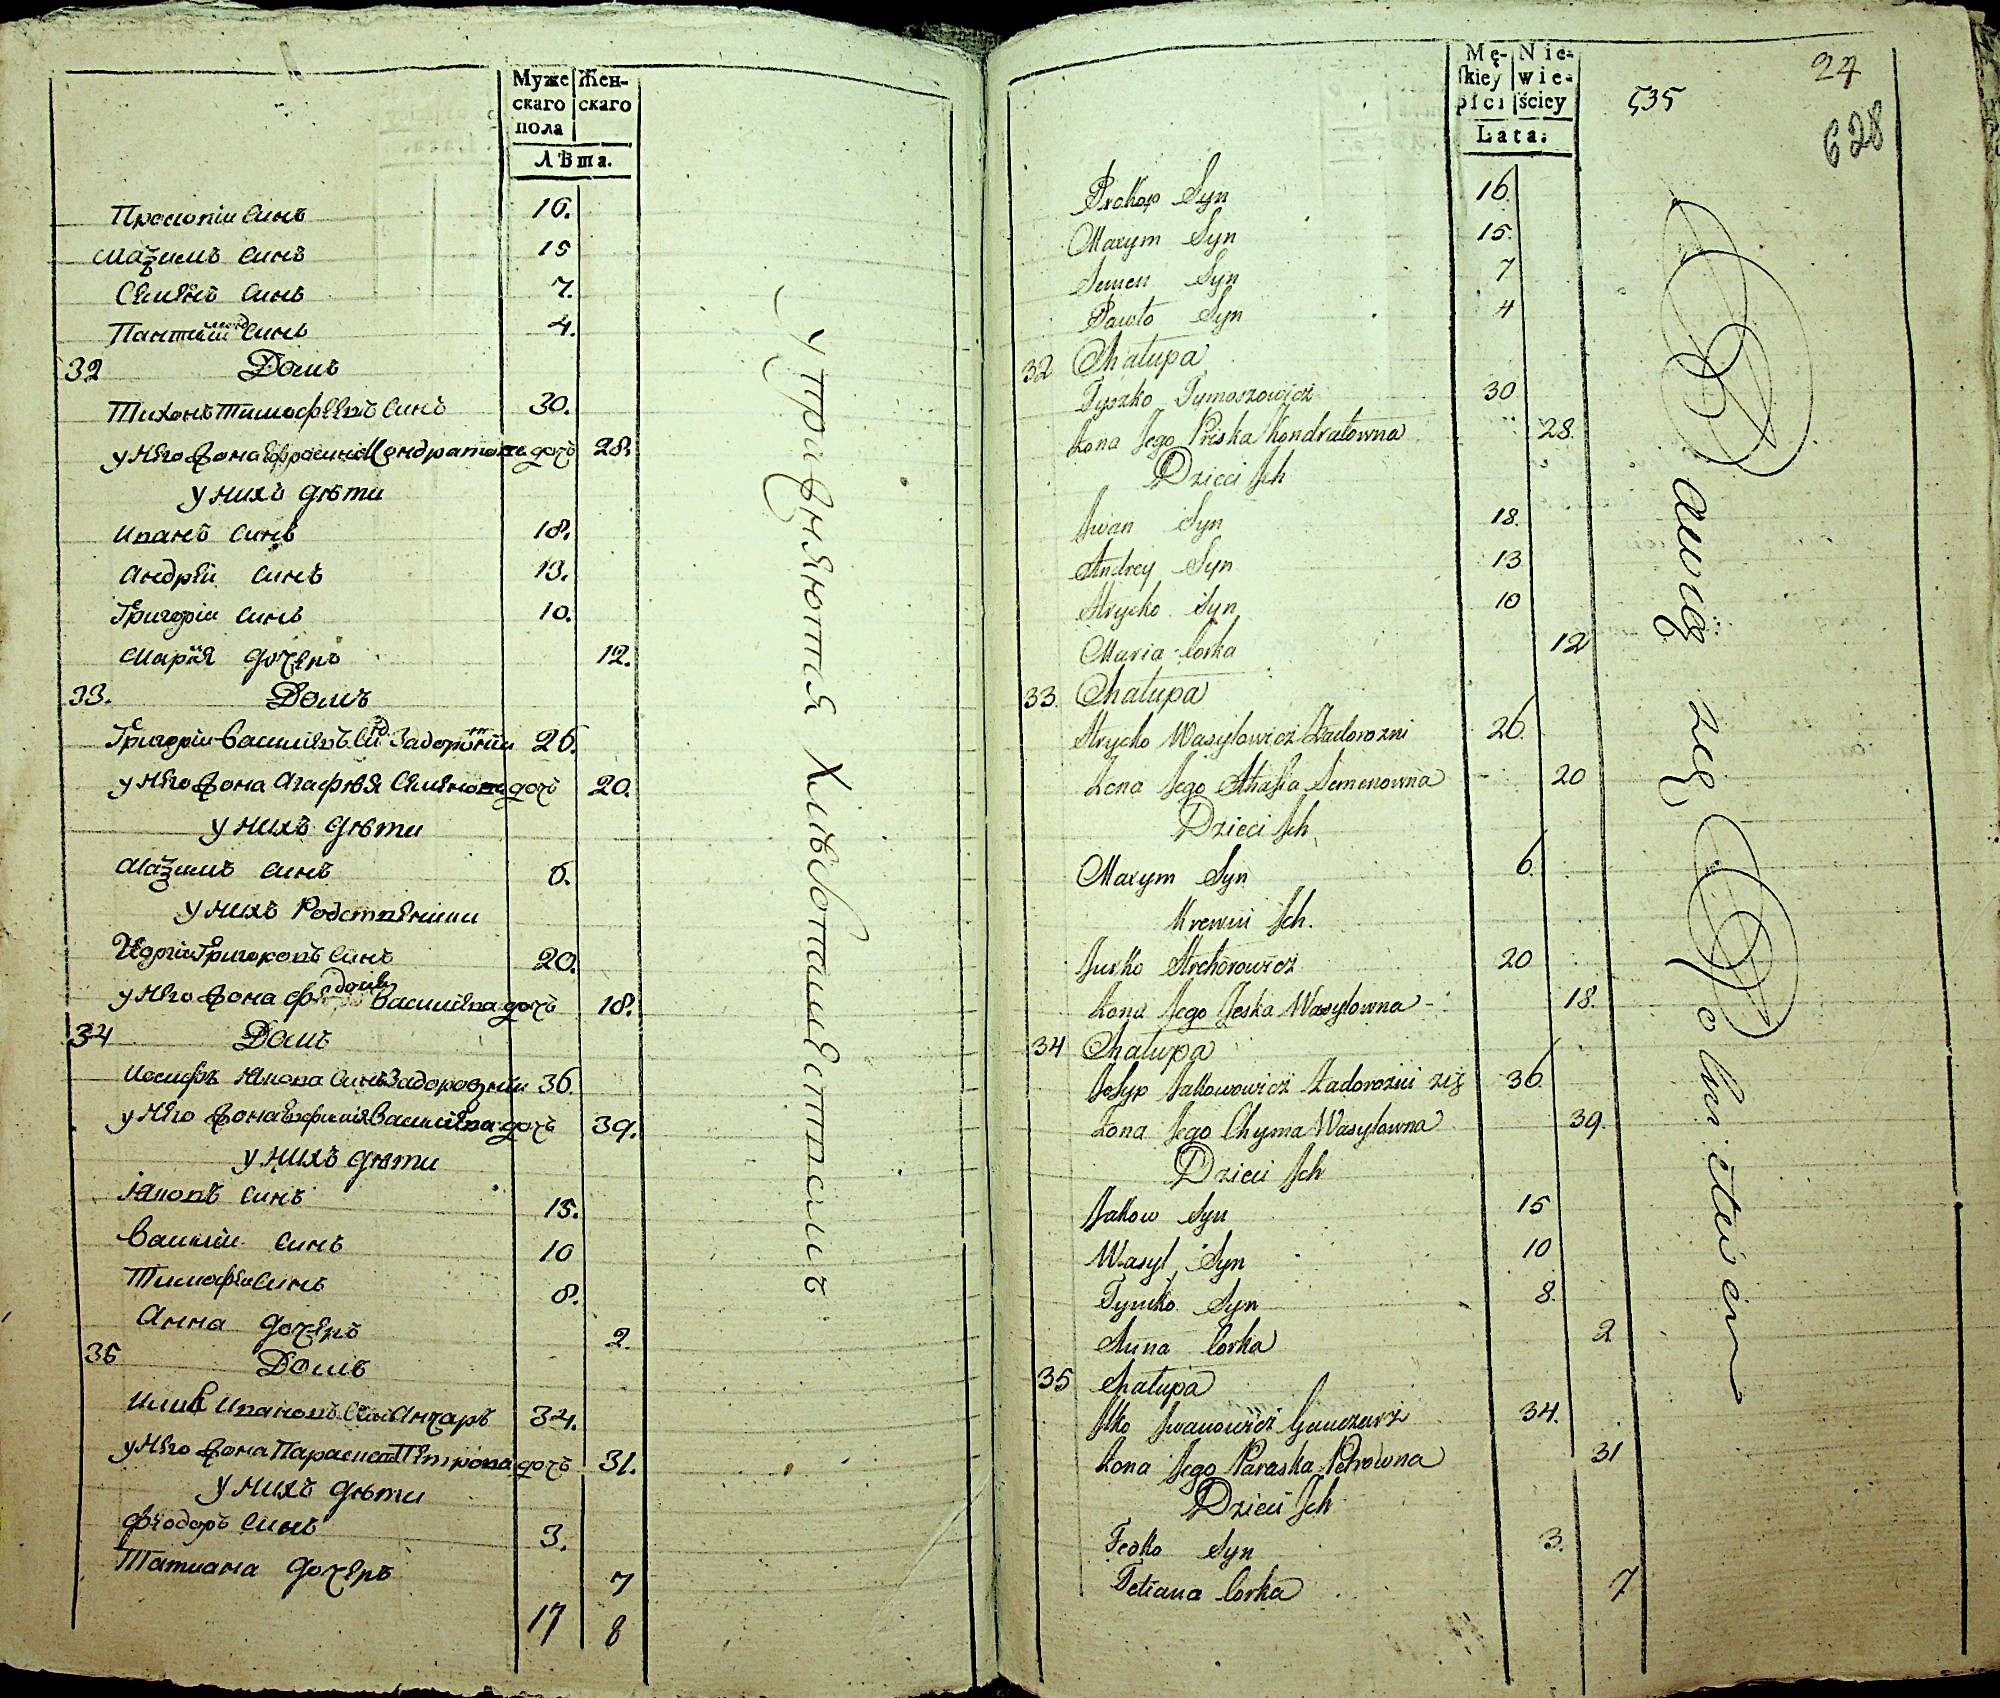 Муже Жен-
скаго скаго
пола
Лѣта.
Прокопіи синъ 16.
Маѯимъ синъ 15
Семенъ синъ 7.
синъ 4.
32 Домъ
Тихонъ Тимофеевъ синъ 30.
у него жона Ефросинія Кондратова дочъ 28.
у нихъ дѣти
Иванъ синъ 18.
Андрей синъ 13.
Григоріи синъ 10.
Марія дочеръ 12.
33. Домъ
Григоріи Василіевъ си Задорожніи 26.
у него жона Агафѣя Семенова дочъ 20.
у нихъ дѣти
Маѯимъ синъ 6.
у нихъ Родственики
Георгіи Григоровъ синъ 20.
у него жона Василіева дочъ 18.
34 Домъ
Иосифъ Якова синъ Задорожніи 36.
у него жона Евфимія Василіева дочъ 39.
у нихъ дѣти
Яковъ синъ 15.
Василіи синъ 10
Тимофеи синъ 8.
Анна дочеръ 2.
35 Домъ
Илия Ивановъ синъ Анчаръ 34.
у него жона Параскева Петрова дочъ 31.
у нихъ дѣти
Феодоръ синъ 3.
Татиана дочеръ 7
17 8
Упражняются Хлѣбопашествомъ
Mę- Nie-
skiey wie-
płci ściey
Lata.
535
27
628
Prokop Syn 16.
Maxym Syn 15.
Semen Syn 7
Pawło Syn 4
32 Chałupa
Tyszko Tymoszowicz 30
Żona Jego Priska Kondratowna 28.
Dzieci Ich
Iwan Syn 18.
Andrey Syn 13
Hrycko Syn 10
Maria Corka 12
33. Chałupa
Hrycko Wasylowicz Zadorozni 26.
Żona Jego Ahafia Semenowna 20
Dzieci Ich
Maxym Syn 6.
Krewni Ich.
Jurko Hrehorowicz 20
Żona Jego Wasylowna 18.
34 Chałupa
Josyp Jakowowicz Zadorozni 36.
Żona Jego Chyma Wasylowna 39.
Dzieci Ich
Jakow Syn 15
Wasyl Syn 10
Tymko Syn 8.
Anna Corka 2
35 Chałupa
Ilko Iwanowicz Ganczarz 34.
Żona Jego Paraska Petrowna 31
Dzieci Ich
Fedko Syn 3.
Tetiana Corka 7
Bawią się Rolnictwem